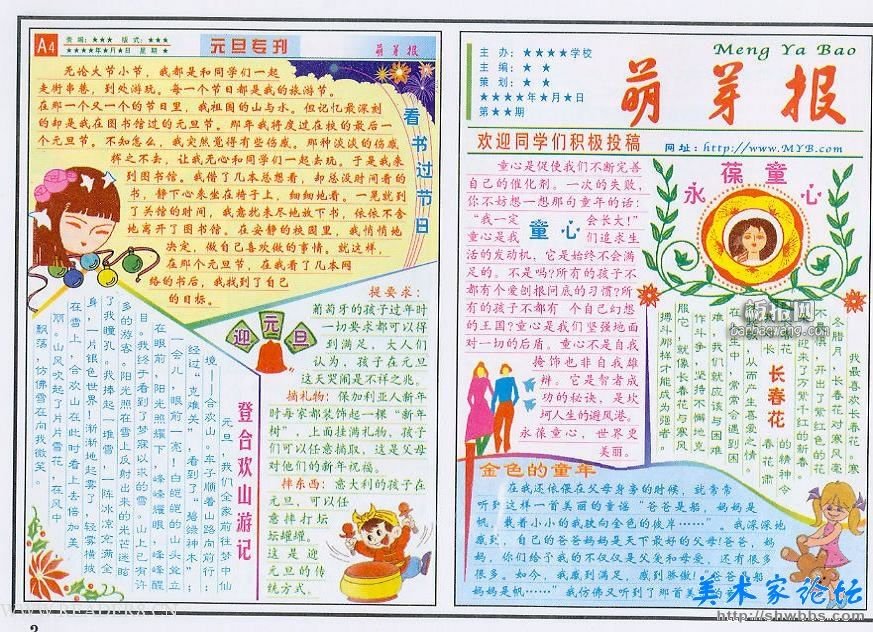 A4
责编：★★★ 版式：★★★
★★★★年★月★日 星期★
元旦专刊
萌芽报
看书过节日
无论大节小节，我都是和同学们一起
走街串巷，到处游玩。每一个节日都是我的旅游节。
在那一个又一个的节日里，我祖国的山与水。但记忆最深刻
的却是我在图书馆过的元旦节。那年我将度过在校的最后一
个元旦节。不知怎么，我突然觉得有些伤感。那种淡淡的伤感
挥之不去，让我无心和同学们一起去玩。于是我来
到图书馆。我借了几本总想看，却总没时间看的
书，静下心来坐在椅子上，细细地看。一晃就到
了关馆的时间，我意犹未尽地放下书，依依不舍
地离开了图书馆。在安静的校园里，我悄悄地
决定，做自己喜欢做的事情。就这样，
在那个元旦节，在我看了几本网
络的书后，我找到了自己
的目标。
迎元旦
登合欢山游记
元旦，我们全家前往梦中仙
境——合欢山。车子顺着山路向前行；
经过“克难关”，看到了“碧绿神木”；
一会儿，眼前一亮！白皑皑的山头耸立
在眼前，阳光照耀下，峰峰耀眼，峰峰醒
目。我终于看到了梦寐以求的雪。山上已有许
多的游客。阳光照在雪上反射出来的光芒迷眩
了我瞳孔。我捧起一堆雪，一阵冰凉充满全
身，一片银色世界！渐渐地起雾了，轻雾横披
在雪上，合欢山在此时看上去倍加美
丽。山风吹起了片片雪花，在风中
飘落，仿佛雪在向我微笑。
提要求：
葡萄牙的孩子过年时
一切要求都可以得
到满足，大人们
认为，孩子在元旦
这天哭闹是不祥之兆。
摘礼物：保加利亚人新年
时每家都装饰起一棵“新年
树”，上面挂满礼物，孩子
们可以任意摘取，这是父母
对他们的新年祝福。
摔东西：意大利的孩子在
元旦，可以任
意摔打坛
坛罐罐。
这是迎
元旦的传
统方式。
主办：★★★★学校
主编：★★
策划：★★
★★★★年★月★日
第★★期
Meng Ya Bao
萌芽报
欢迎同学们积极投稿
网址：http://www.MYB.com
童心
童心是促使我们不断完善
自己的催化剂。一次的失败，
你不妨想一想那句童年的话：
“我一定会长大！”
童心是我们追求生
活的发动机，它是始终不会满
足的。不是吗？所有的孩子不
都有个爱刨根问底的习惯？所
有的孩子不都有个自己幻想
的王国？童心是我们坚强地面
对一切的后盾。童心不是自我
掩饰也非自我雄
辩。它是智者成
功的秘诀，是坎
坷人生的避风港。
永葆童心，世界更
美丽。
永葆童心
长春花
我最喜欢长春花。寒
冬腊月，长春花对寒风毫
不惧，开出了紫红色的花
迎来了万紫千红的新年。
春花的精神令
春花肃
从而产生喜爱之情。
在生中，常常会遇到困
难，我们就应该与困难
作斗争，坚持不懈地克
服它，就像长春花与寒风
搏斗那样才能成为强者。
金色的童年
在我还依偎在父母身旁的时候，就常常
听到这样一首美丽的童谣“爸爸是船，妈妈是
帆，载着小小的我驶向金色的彼岸……”。我深深地
感到，自己的爸爸妈妈是天下最好的父母！爸爸，妈
妈，你们给予我的不仅仅是父爱和母爱，还有很多
很多。如今，我感到满足，感到骄傲！“爸爸是船
妈妈是帆……”我仿佛又听到了那首美
板报网
banbaowang.com
美术家论坛
http://shwbhs.com
2